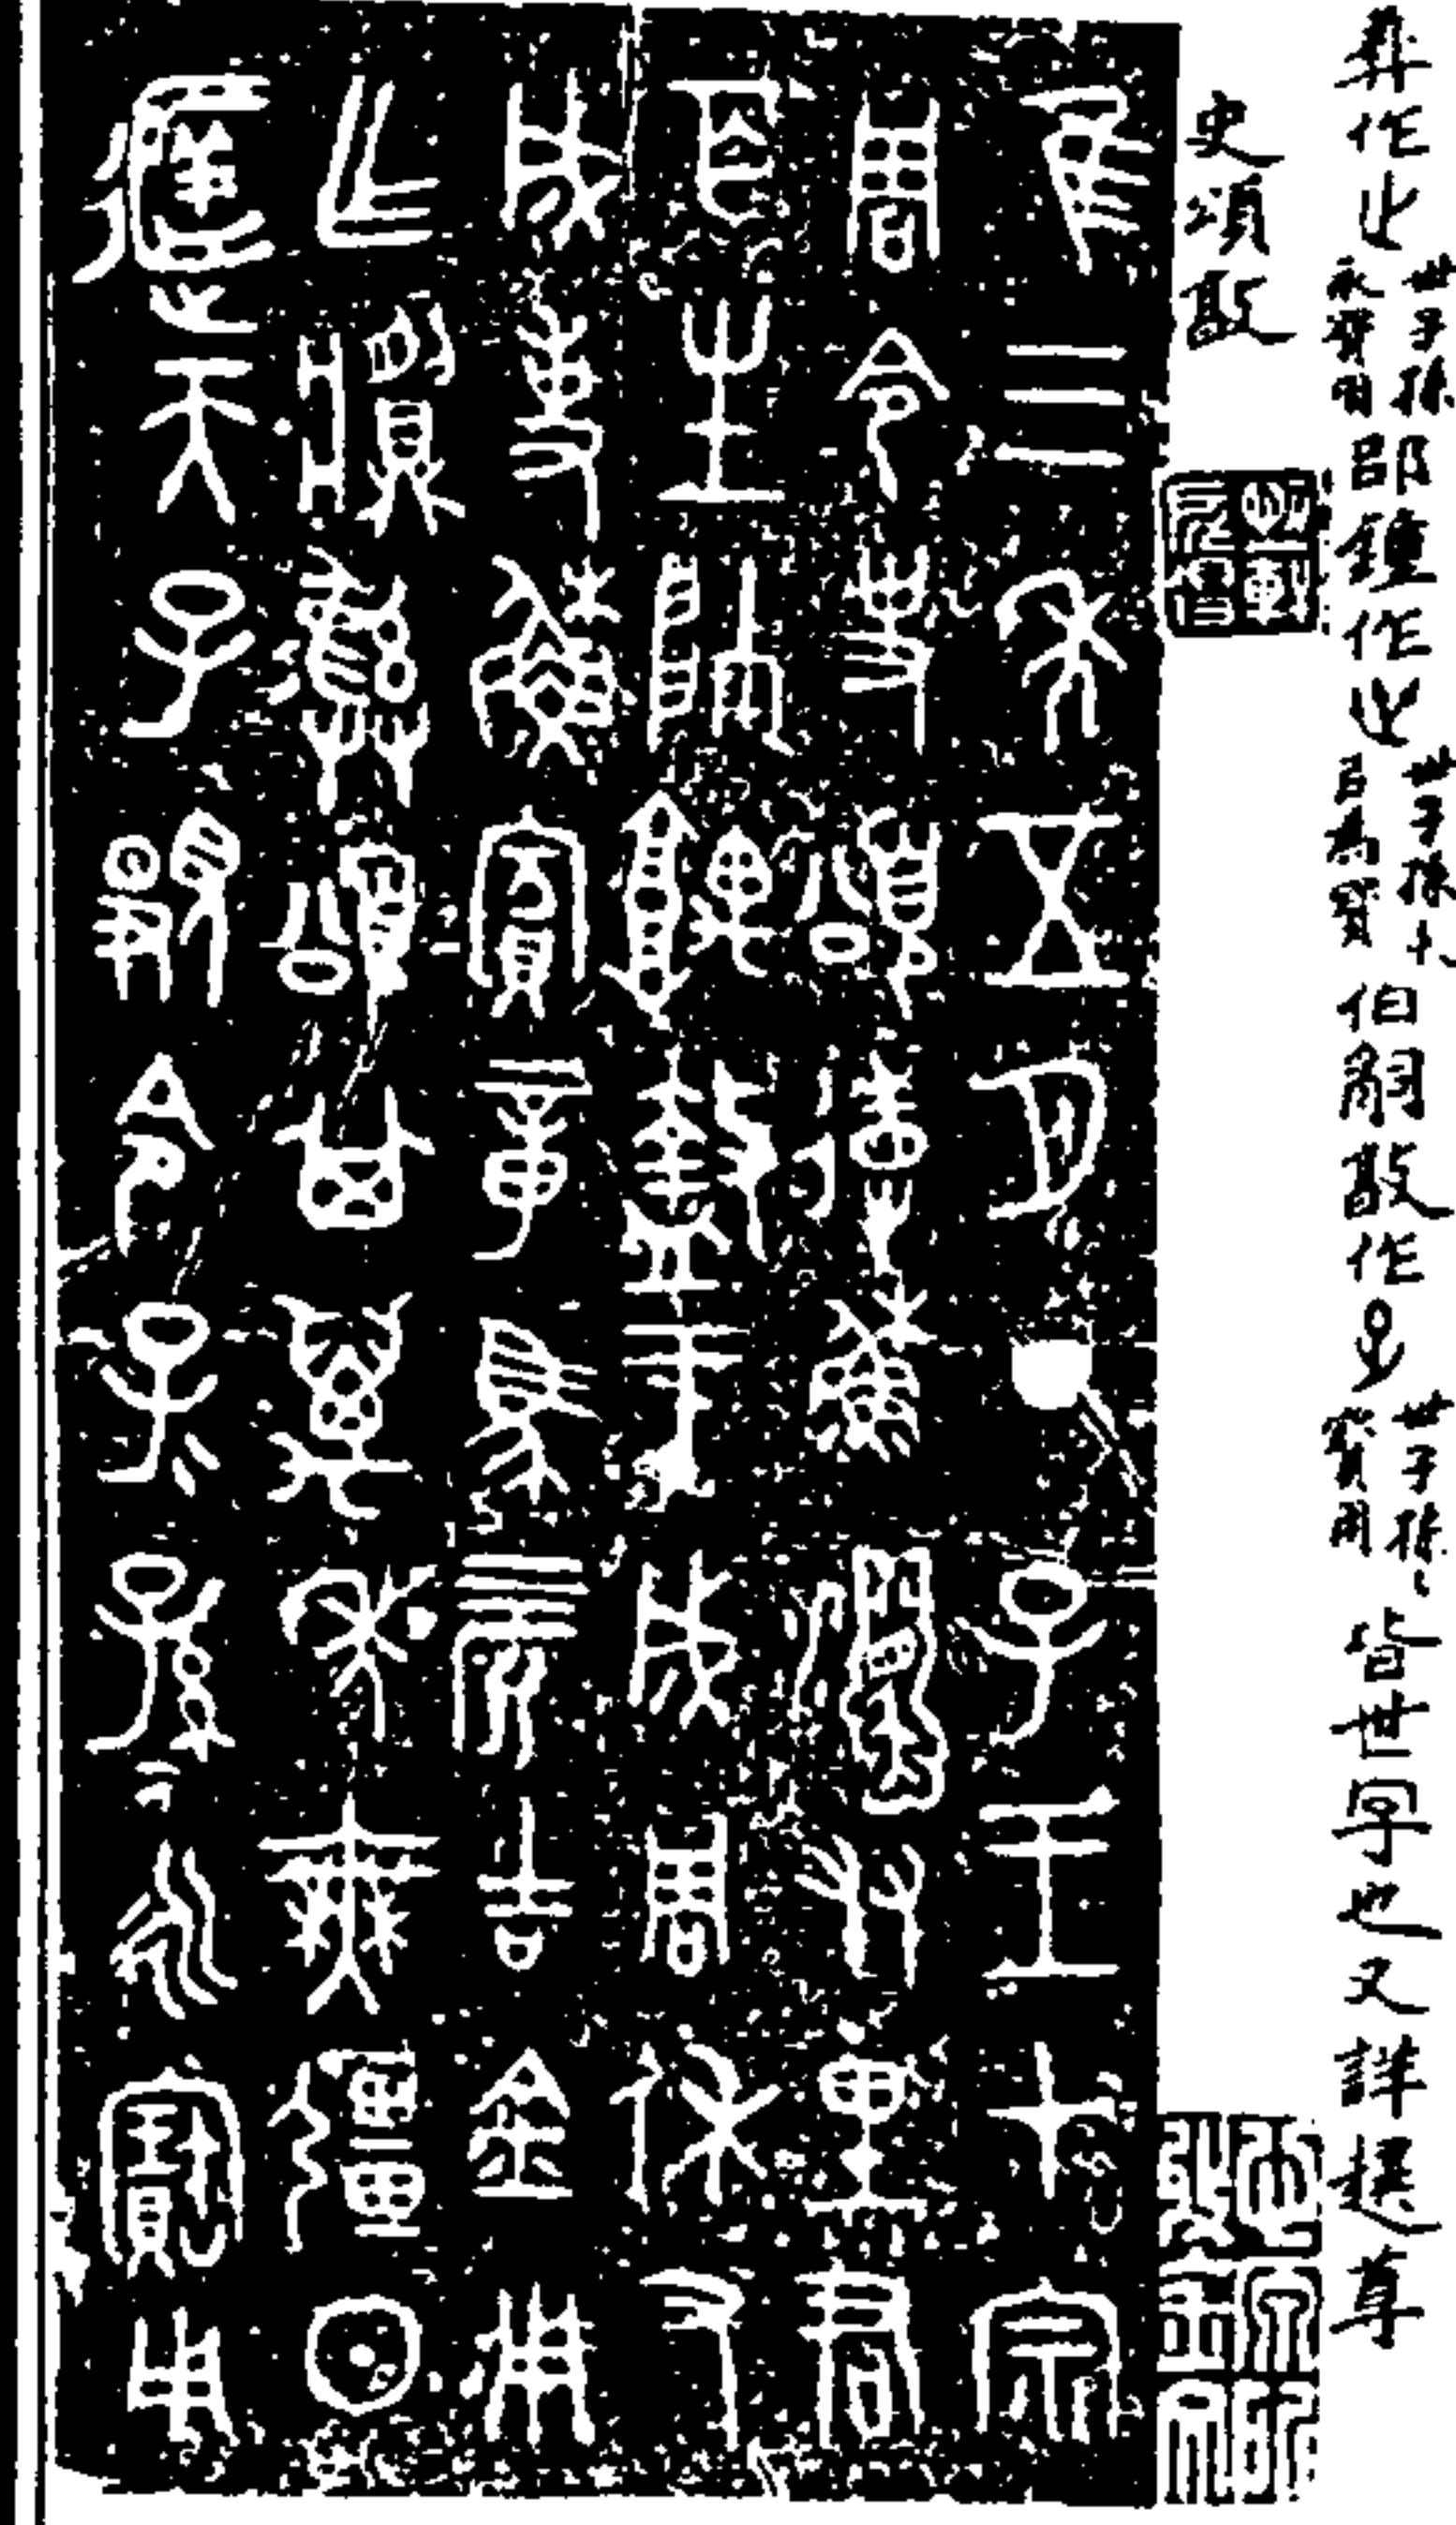 彝作㞢世子孫永寶用邵鐘作㞢世子孫﹦以為寶伯嗣敦作世子孫﹦寶用皆世字也又詳趩尊
史頌敦
隹三年五月丁子王才宗
周令史頌省穌姻友里君
百生帥堣盩于成周休又
成事穌賓章馬四匹吉金用
乍䵼彝頌其萬年無疆日
遅天子顯令子﹦孫﹦永寶用